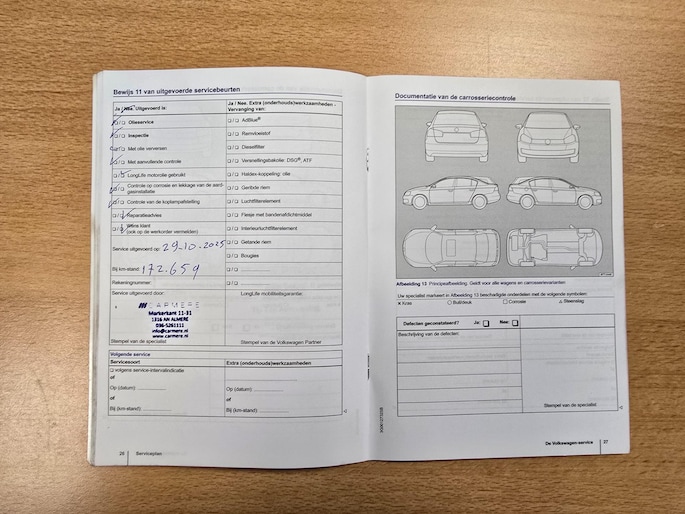 Bewijs 11 van uitgevoerde servicebeurten
Ja / Nee. Uitgevoerd is:
Olieservice
Inspectie
Met olie verversen
Met aanvullende controle
LongLife motorolie gebruikt
Controle op corrosie en lekkage van de aard-
gasinstallatie
Controle van de koplampafstelling
Reparatieadvies
Wens klant
(ook op de werkorder vermelden)
Service uitgevoerd op: 29-10-2025
Bij km-stand: 172.659
Rekeningnummer:
Service uitgevoerd door:
CARMERE
Markerkant 11-31
1316 AN ALMERE
036-5261111
info@carmere.nl
www.carmere.nl
Stempel van de specialist
Ja / Nee. Extra (onderhouds)werkzaamheden -
Vervanging van:
AdBlue®
Remvloeistof
Dieselfilter
Versnellingsbakolie: DSG®, ATF
Haldex-koppeling: olie
Geribde riem
Luchtfilterelement
Flesje met bandenafdichtmiddel
Interieurluchtfilterelement
Getande riem
Bougies
LongLife mobiliteitsgarantie:
Stempel van de Volkswagen Partner
Volgende service
Servicesoort
volgens service-intervalindicatie
of
Op (datum)
of
Bij (km-stand)
Extra (onderhouds)werkzaamheden
Op (datum):
of
Bij (km-stand):
26 Serviceplan
Documentatie van de carrosseriecontrole
Afbeelding 13 Principeafbeelding: Geldt voor alle wagens en carrosserievarianten
Uw specialist markeert in Afbeelding 13 beschadigde onderdelen met de volgende symbolen:
× Kras
○ Buil/deuk
□ Corrosie
△ Steenslag
Defecten geconstateerd? Ja: Nee:
Beschrijving van de defecten:
Stempel van de specialist:
De Volkswagen-service 27